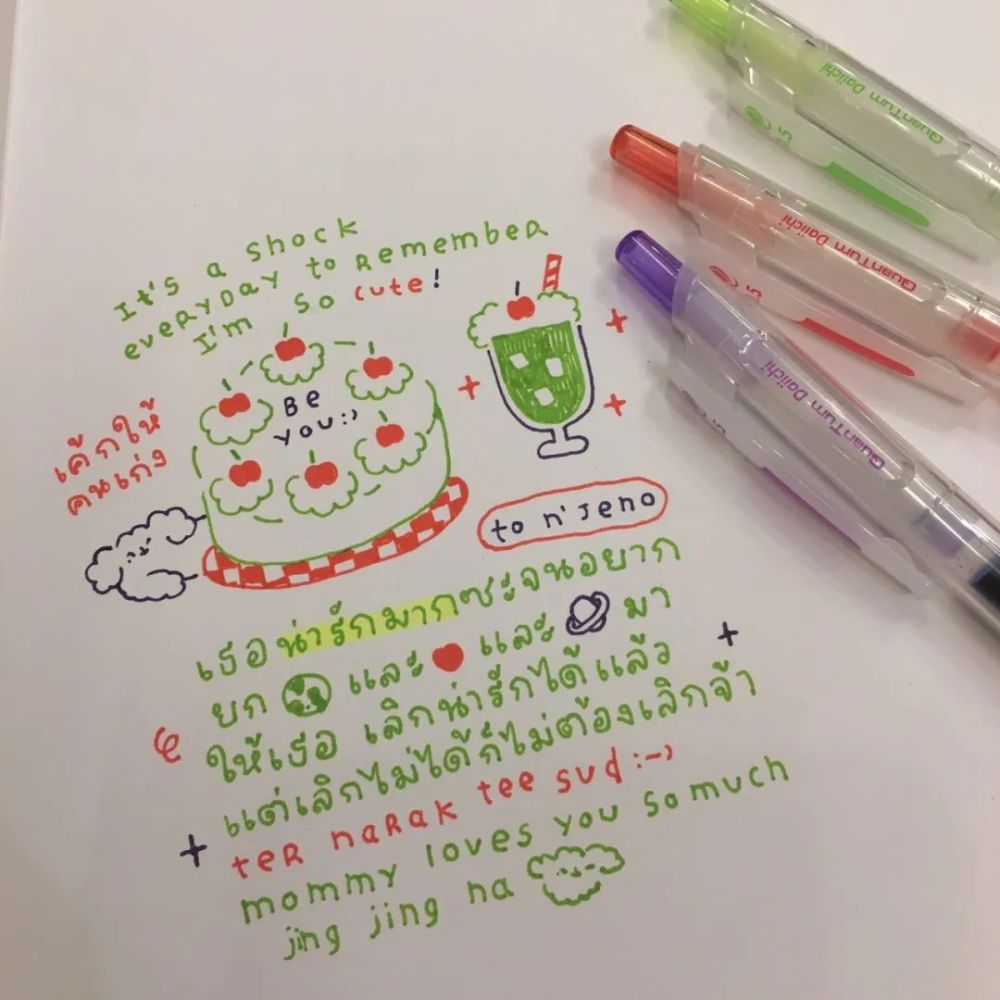 It's a shock
everyday to remember
I'm so cute!
Be
you:)
เค้กให้
คนเก่ง
to n'Jeno
เธอน่ารักมากซะจนอยาก
ยก และ และ มา
ให้เธอ เลิกน่ารักได้แล้ว
แต่เลิกไม่ได้ก็ไม่ต้องเลิกจ้า
ter narak tee sud :-)
mommy loves you so much
jing jing na
QuanTum Daiichi
QuanTum Daiichi
QuanTum Daiichi